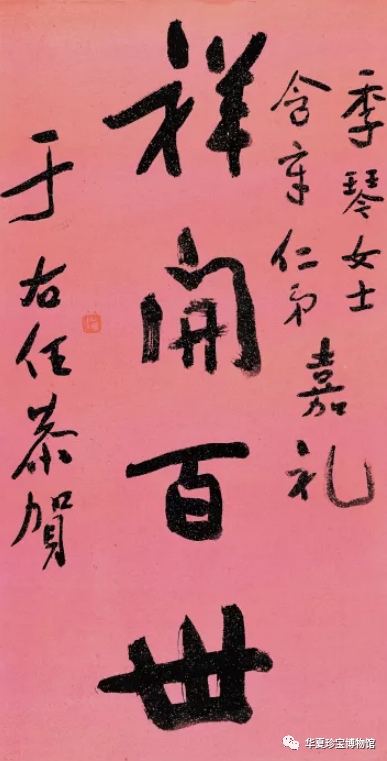 季琴女士
含章仁弟
嘉礼
祥開百世
于右任恭賀
华夏珍宝博物馆